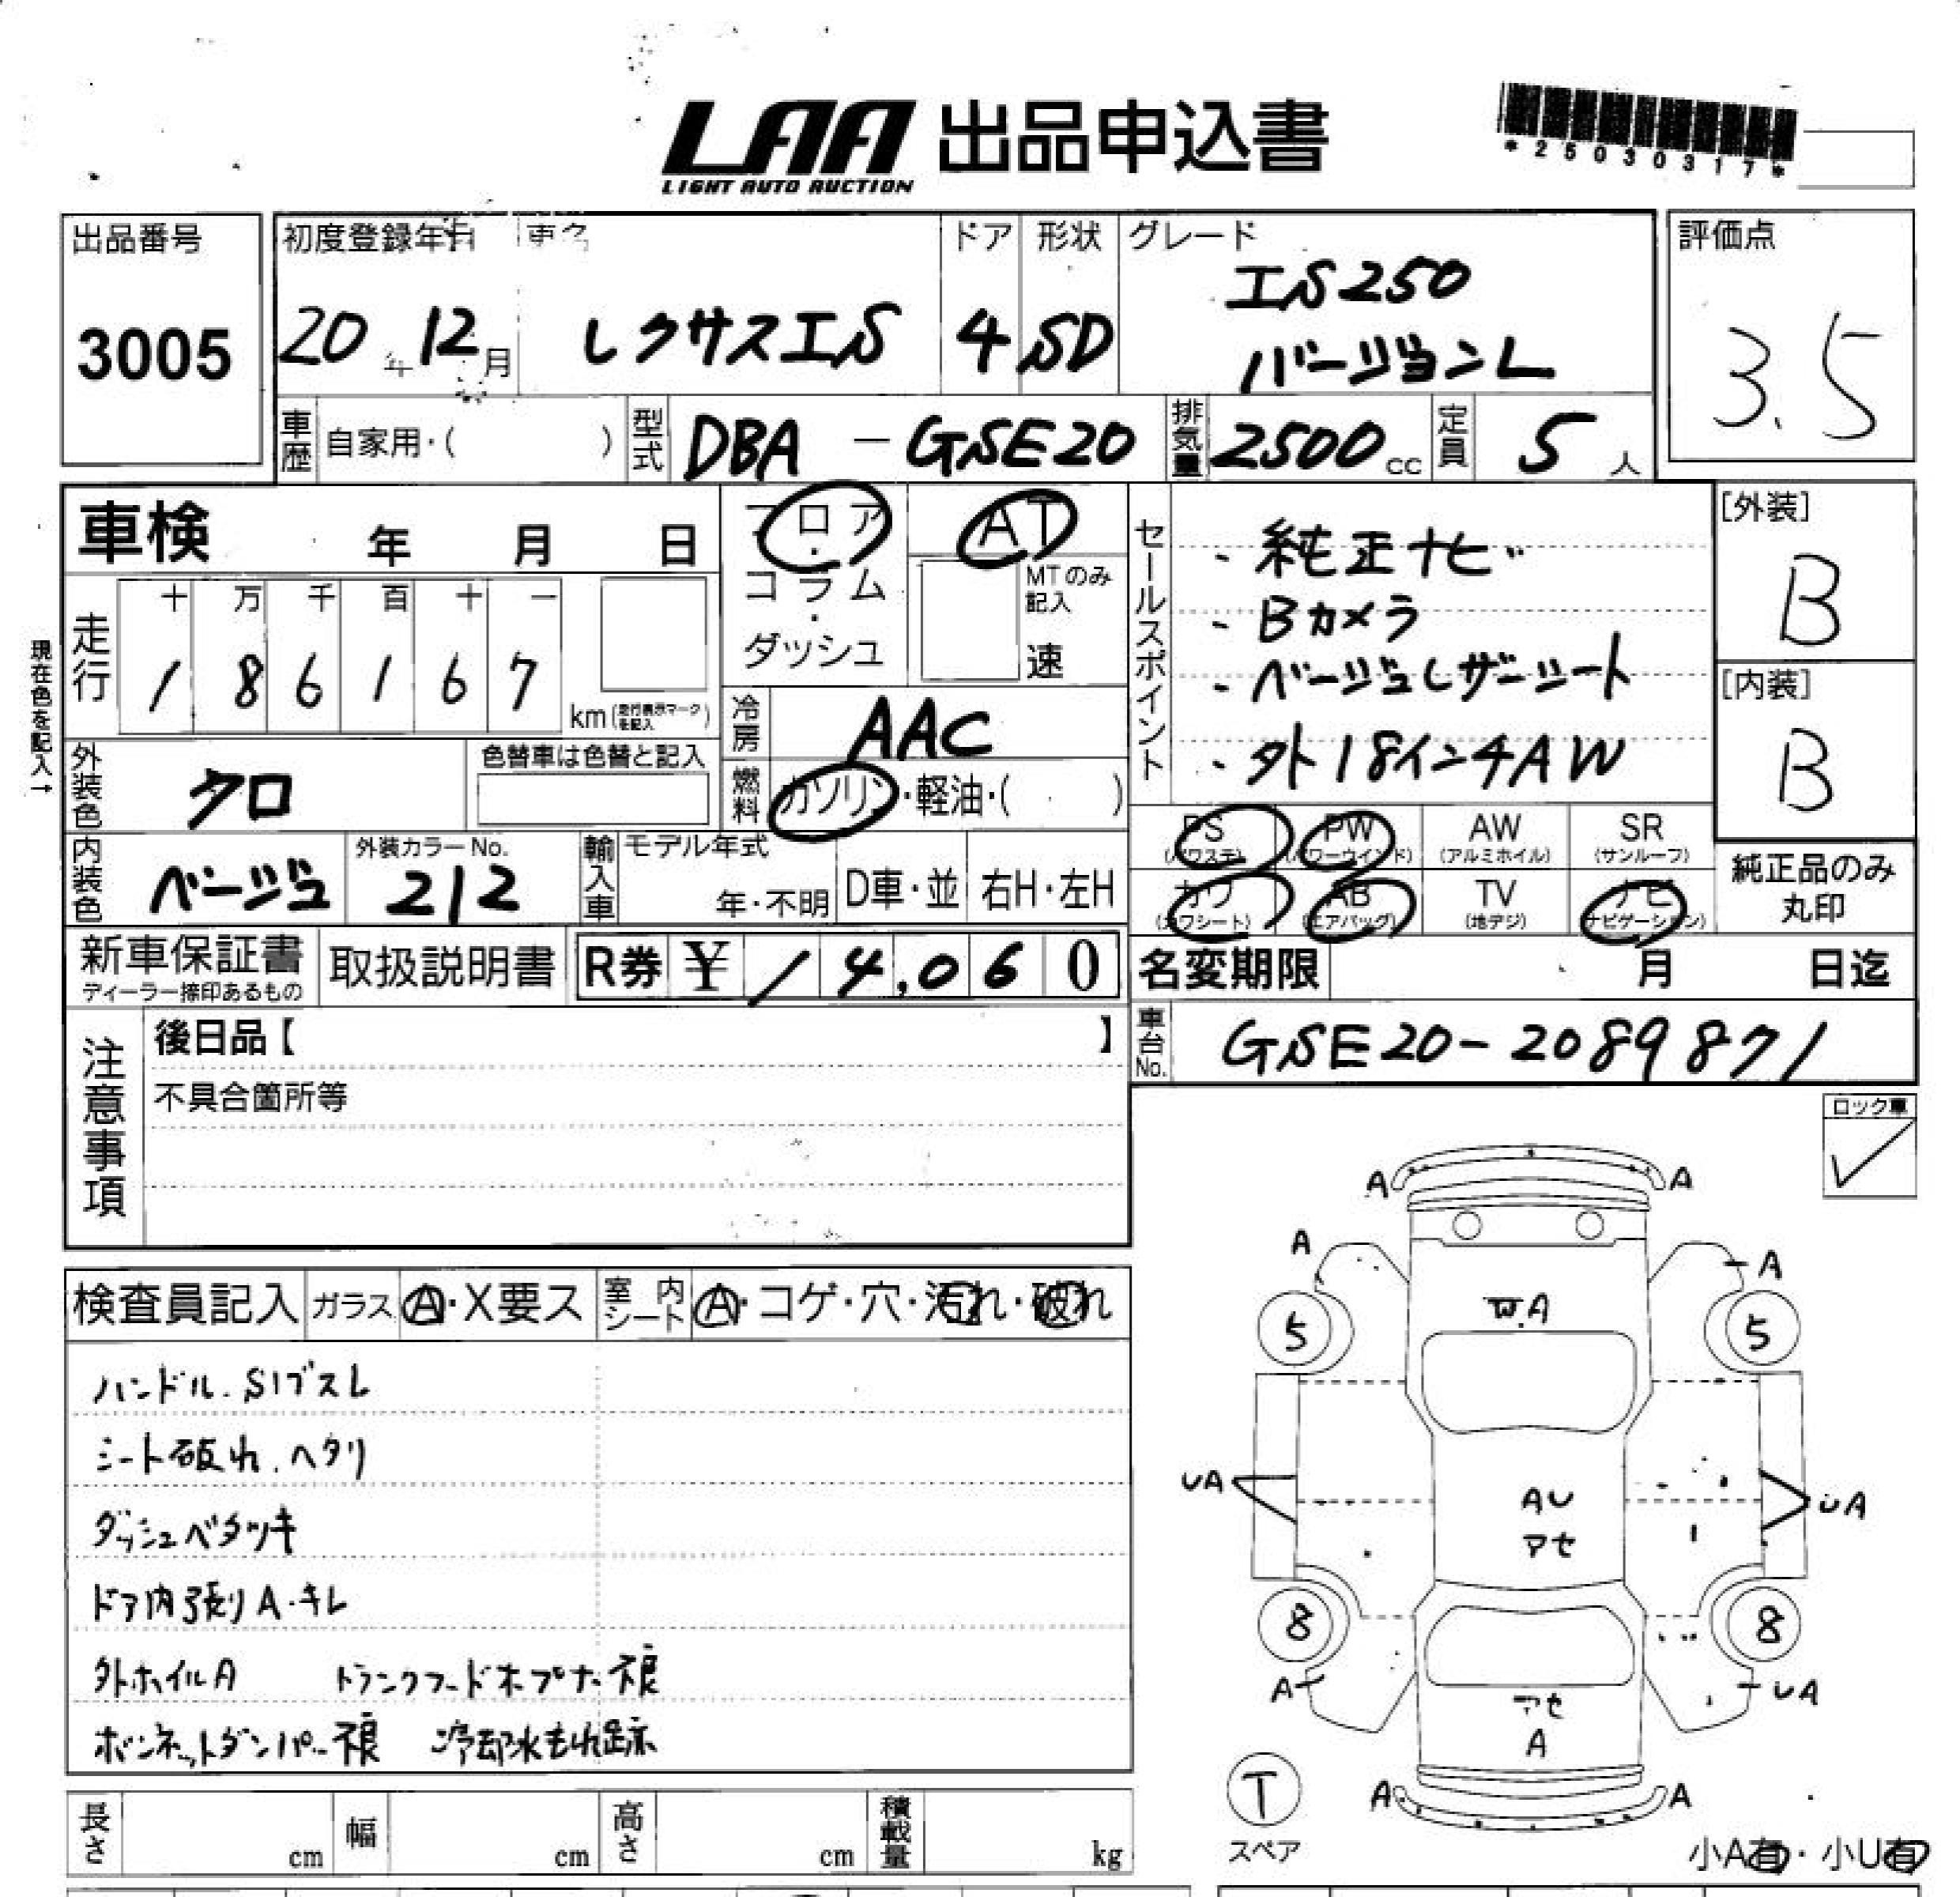 LAA 出品申込書
LIGHT AUTO AUCTION
*25030317*
出品番号
3005
初度登録年月 車名
20年12月 レクサスIS
ドア 形状 グレード
4 SD IS250
バージョンL
評価点
3.5
車歴 自家用・( )
型式 DBA - GSE20
排気量 2500cc
定員 5人
車検 年 月 日
フロア・コラム・ダッシュ
AT
MTのみ記入
速
セールスポイント
・純正ナビ
・Bカメラ
・ベージュレザーシート
・外18インチAW
[外装]
B
[内装]
B
純正品のみ
丸印
現在色を記入→
走行 十 万 千 百 十 一
1 8 6 1 6 7
km (走行表示マークを記入)
冷房 AAC
燃料 ガソリン・軽油・( )
外装色 クロ
色替車は色替と記入
内装色 ベージュ
外装カラーNo.
212
輸入車 モデル年式
年・不明 D車・並 右H・左H
PS (パワステ) PW (パワーウインド) AW (アルミホイル) SR (サンルーフ)
カワ (カワシート) AB (エアバッグ) TV (地デジ) ナビ (ナビゲーション)
新車保証書
ディーラー捺印あるもの
取扱説明書
R券 ¥ 14,060
名変期限 月 日迄
車台No. GSE20-2089871
注意事項
後日品【 】
不具合箇所等
ロック車
✓
検査員記入 ガラス A・X要ス 室内シート A・コゲ・穴・汚れ・破れ
ハンドル.S1ブスレ
シート破れ.ヘタリ
ダッシュベタツキ
ドア内張りA・キレ
外ホイルA トランクフードオープナー不良
ボンネットダンパー不良 冷却水もれ跡
A A
A A
W.A
5 5
UA AU UA
アセ
8 8
A UA
アセ
A
T
スペア
A A
小A有・小U有
長さ cm 幅 cm 高さ cm 積載量 kg